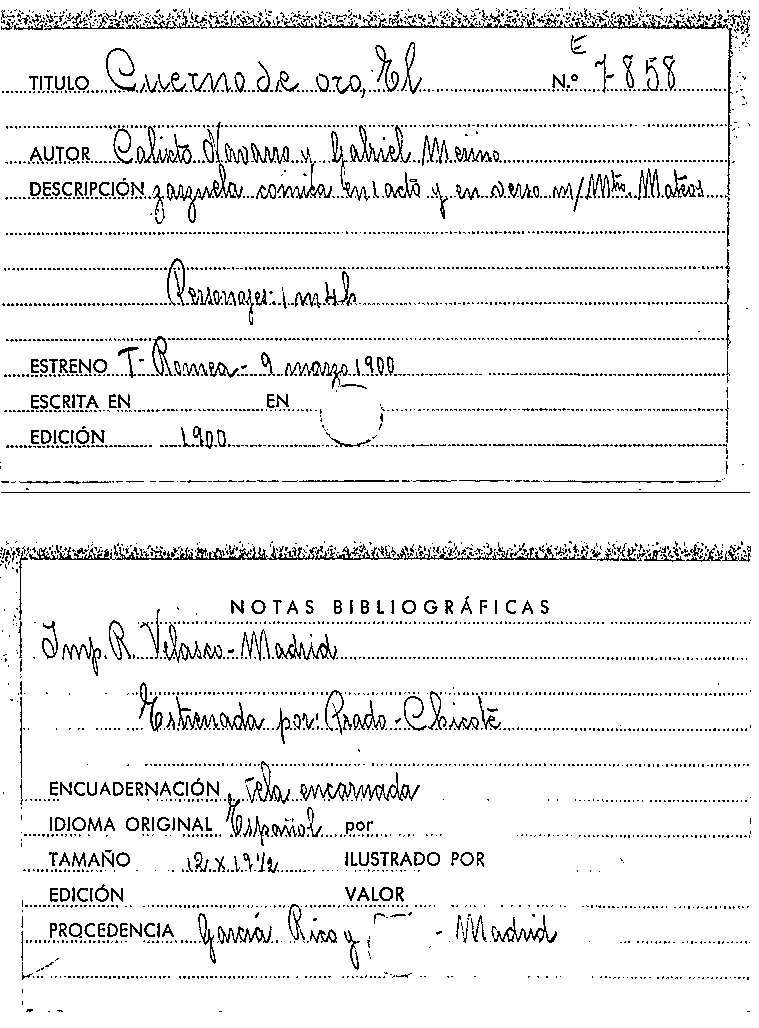 TITULO Cuerno de oro, El N.º E 7-858
AUTOR Calixto Navarro y Gabriel Merino
DESCRIPCIÓN zarzuela cómica en 1 acto y en verso m/ Mtro. Mateos
Personajes: 1 m 4 h
ESTRENO T- Romea - 9 marzo 1900
ESCRITA EN EN
EDICIÓN 1900
NOTAS BIBLIOGRÁFICAS
Imp. R. Velasco - Madrid
Estrenada por: Prado - Chicote
ENCUADERNACIÓN tela encarnada
IDIOMA ORIGINAL Español por
TAMAÑO 12 x 19 1/2 ILUSTRADO POR
EDICIÓN VALOR
PROCEDENCIA García Rico y - Madrid